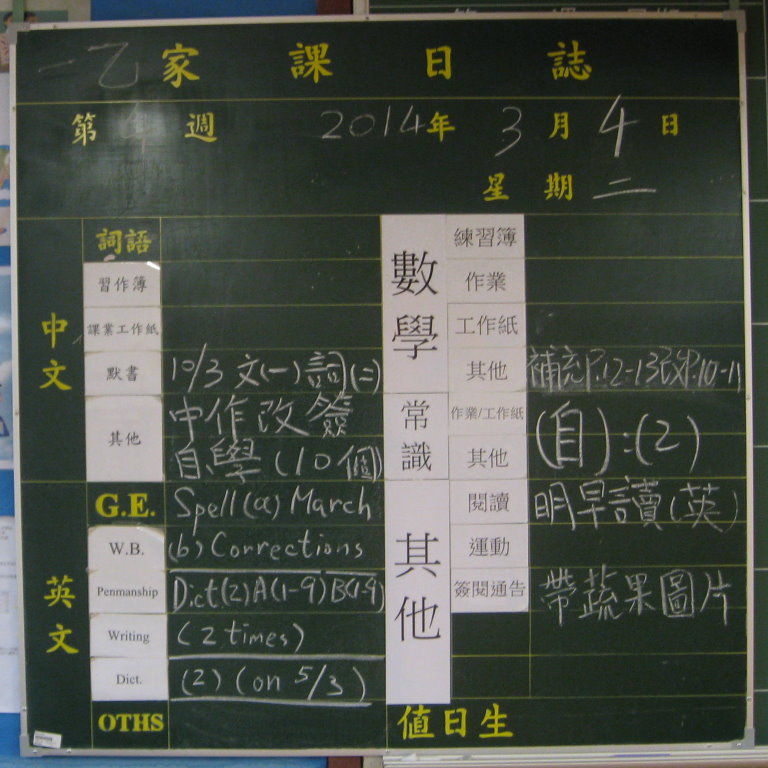 一乙家課日誌
第4週 2014年3月4日
星期二
中文
詞語
習作簿
課業工作紙
默書 10/3 文(一)詞(二)
其他 中作改簽
自學(10個)
英文
G.E. Spell(a) March
W.B. (b) Corrections
Penmanship Dict(2)A(1-9)B(1-9)
Writing (2 times)
Dict. (2) (on 5/3)
OTHS
數學
練習簿
作業
工作紙
其他 補充P.12-13 P.10-11
常識
作業/工作紙 (自):(2)
其他
其他
閱讀 明早讀(英)
運動
簽閱通告 帶蔬果圖片
值日生